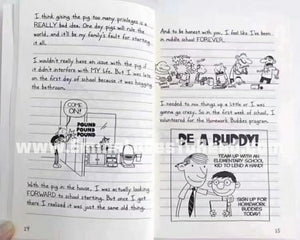 I think giving the pig too many privileges is a
REALLY bad idea. One day pigs will rule the
world, and it'll be my family's fault for starting
it all.
I wouldn't really have an issue with the pig if
it didn't interfere with MY life. But I was late
on the first day of school because it was hogging
the bathroom.
COME
ON!
POUND
POUND
POUND
With the pig in the house, I was actually looking
FORWARD to school starting. But once I got
there I realized it was just the same old thing.
14
And to be honest with you, I feel like I've been
in middle school FOREVER.
I needed to mix things up a little or I was
gonna go crazy. So in the first week of school, I
volunteered for the Homework Buddies program.
BE A BUDDY!
TEAM UP WITH AN
ELEMENTARY SCHOOL
KID TO LEND A HAND!
SIGN UP FOR
HOMEWORK
BUDDIES
TODAY!
15